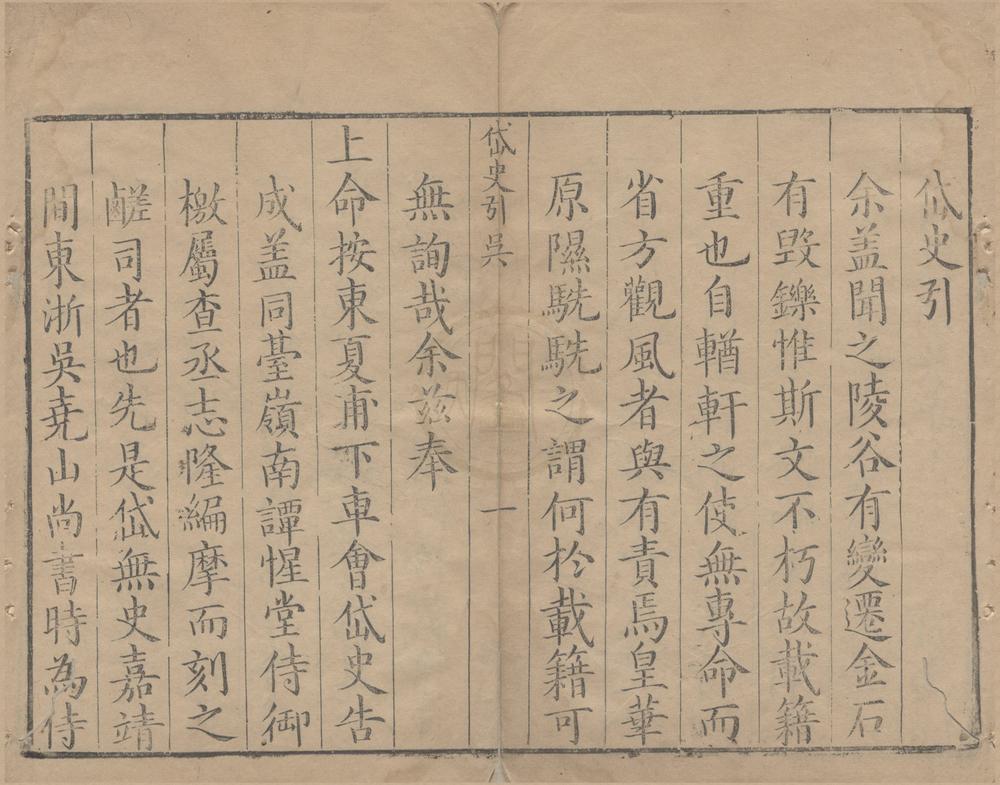 岱史引
余盖聞之陵谷有變遷金石
有毀鑠惟斯文不朽故載籍
重也自輶軒之使無專命而
省方觀風者與有責焉皇華
原隰駪駪之謂何於載籍可
岱史引 吳 一
無詢哉余兹奉
上命按東夏甫下車會岱史告
成盖同臺嶺南譚惺堂侍御
檄屬查丞志隆編摩而刻之
鹺司者也先是岱無史嘉靖
間東浙吳堯山尚書時為侍